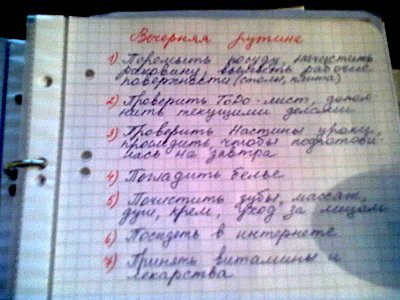 Вечерняя рутина
1) Перемыть посуду, почистить
раковину, вымыть рабочие
поверхности (столы, плита)
2) Проверить ToDo-лист, допол
нить текущими делами
3) Проверить Настины уроки,
проследить, чтобы подготови
лась на завтра
4) Погладить белье
5) Почистить зубы, массаж,
душ, крем, уход за лицом
6) Посидеть в интернете
7) Принять витамины и
лекарства